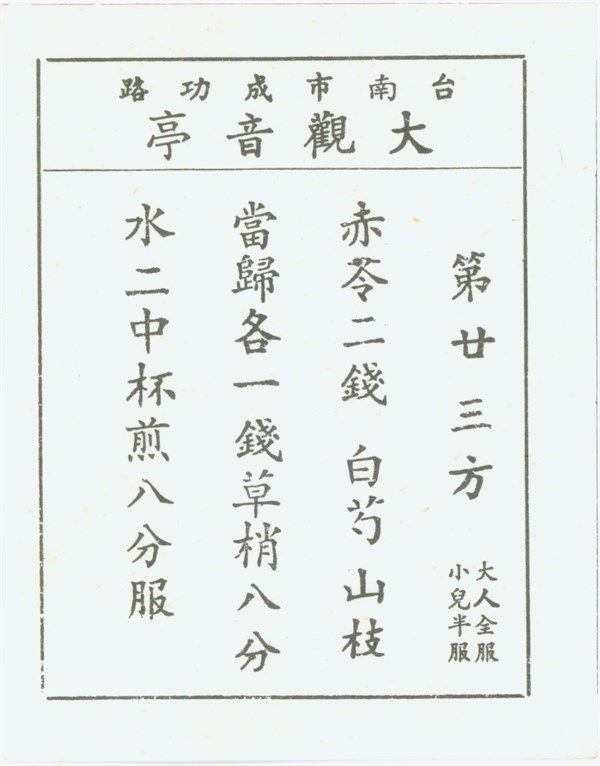 台南市成功路
大觀音亭
第廿三方
大人全服
小兒半服
赤苓二錢 白芍山枝
當歸各一錢草梢八分
水二中杯煎八分服